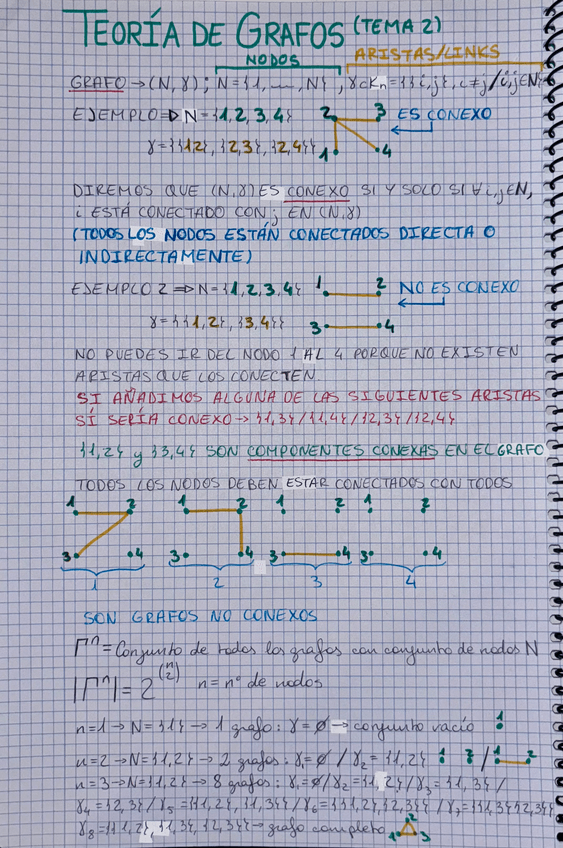 TEORÍA DE GRAFOS (TEMA 2)
NODOS ARISTAS/LINKS
GRAFO → (N, γ) ; N={1, ..., N} , γ⊂Kₙ={{i,j}, i≠j / i,j∈N}
EJEMPLO ⇒ N={1,2,3,4} 2 3 ES CONEXO
γ={{12}, {2,3}, {2,4}} 1 4
DIREMOS QUE (N,γ) ES CONEXO SI Y SOLO SI ∀i,j∈N,
i ESTÁ CONECTADO CON j EN (N,γ)
(TODOS LOS NODOS ESTÁN CONECTADOS DIRECTA O
INDIRECTAMENTE)
EJEMPLO 2 ⇒ N={1,2,3,4} 1 2 NO ES CONEXO
γ={{1,2}, {3,4}} 3 4
NO PUEDES IR DEL NODO 1 AL 4 PORQUE NO EXISTEN
ARISTAS QUE LOS CONECTEN.
SI AÑADIMOS ALGUNA DE LAS SIGUIENTES ARISTAS
SÍ SERÍA CONEXO → {1,3} / {1,4} / {2,3} / {2,4}
{1,2} y {3,4} SON COMPONENTES CONEXAS EN EL GRAFO
TODOS LOS NODOS DEBEN ESTAR CONECTADOS CON TODOS
1 2 1 2 1 2 1 2
3 4 3 4 3 4 3 4
1 2 3 4
SON GRAFOS NO CONEXOS
Γⁿ = Conjunto de todos los grafos con conjunto de nodos N
|Γⁿ| = 2^(n 2) n = nº de nodos
n=1 → N={1} → 1 grafo: γ=∅ → conjunto vacío 1
n=2 → N={1,2} → 2 grafos: γ₁=∅ / γ₂={1,2} 1 2 / 1 2
n=3 → N={1,2} → 8 grafos: γ₁=∅ / γ₂={1,2} / γ₃={1,3} /
γ₄={2,3} / γ₅={{1,2}, {1,3}} / γ₆={{1,2},{2,3}} / γ₇={{1,3}{2,3}}
γ₈={{1,2},{1,3},{2,3}} → grafo completo 1 2 3